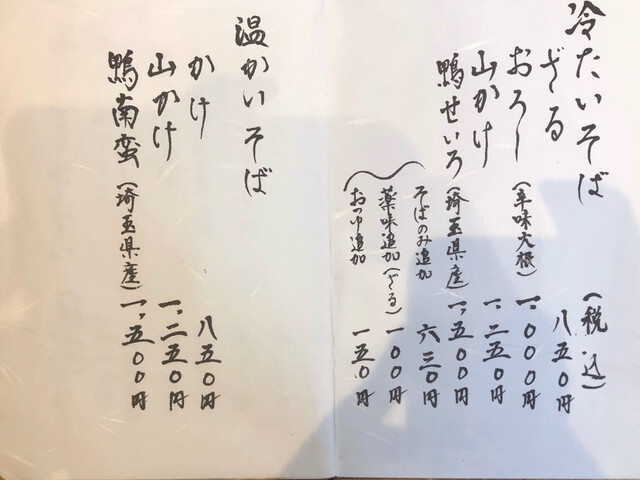 冷たいそば (税込)
ざる 八五〇円
おろし (辛味大根) 一、〇〇〇円
山かけ 一、二五〇円
鴨せいろ (埼玉県産) 一、五〇〇円
そばのみ追加 六三〇円
薬味追加 (ざる) 一〇〇円
おつゆ追加 一五〇円
温かいそば
かけ 八五〇円
山かけ 一、二五〇円
鴨南蛮 (埼玉県産) 一、五〇〇円